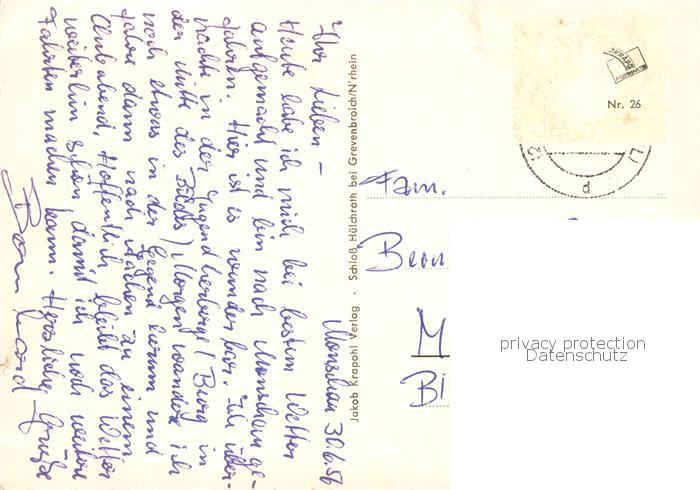 Monschau 30.6.56
Ihr Lieben –
Heute habe ich mich bei bestem Wetter
aufgemacht und bin nach Monschau ge-
fahren. Hier ist es wunderbar. Ich über-
nachte in der Jugendherberge (Burg in
der Mitte des Bildes) Morgen wandere ich
noch etwas in der Gegend herum und
fahre dann nach Aachen zu einem
Clubabend. Hoffentlich bleibt das Wetter
weiterhin schön, damit ich noch weitere
Fahrten machen kann. Herzliche Grüße
Jakob Krapohl Verlag · Schloß Hülchrath bei Grevenbroich/N'rhein
KRAPO
POSTKARTE
Nr. 26
d
Fam.
Bern
M
BI
privacy protection
Datenschutz